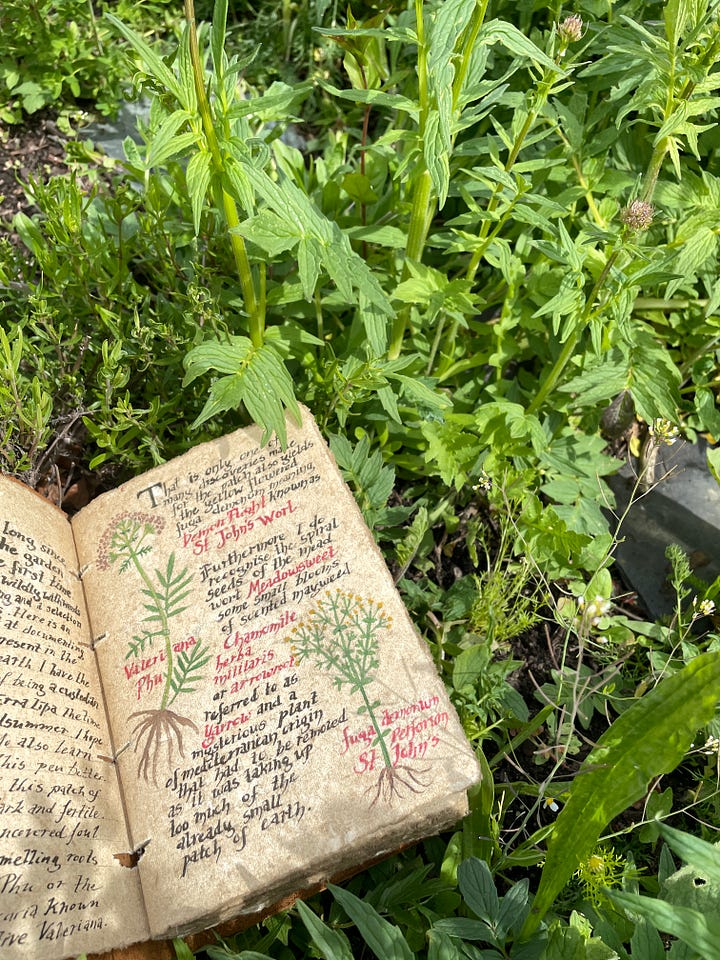 long since,
he garden
e first time
wildly with weeds
ng and a selection
Here is an
at documenting
present in the
eath. I have the
of being a custodian
erra Lipa the time
dsummer. I hope
to also learn
this pen better
this patch of
ark and fertile.
ncovered foul
melling roots
Phu or the
aria Known
True Valeriana.
That is only one of
many discoveries made
for the patch also yields
the yellow flowered
fuga demonum meaning,
Demon Flight known as
St John's Wort
Furthermore I do
recognise the spiral
seeds of the mead
wort Meadowsweet
some small blooms
of scented mayweed
Chamomile
herba
militaris
or arrowroot
referred to as
Yarrow and a
mysterious plant
of mediterranean origin
that had to be removed
as it was taking up
too much of the
already small
patch of earth.
Valeriana
Phu
fuga demonium
St Perforion
St John's